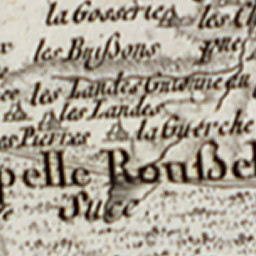 la Gosserie les
les Buißons
les Landes Guionne au
les Landes
es Pierres la Guerche
pelle Roußel
Succ